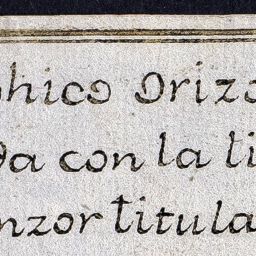 phico Orizo
da con la li
nzor titula